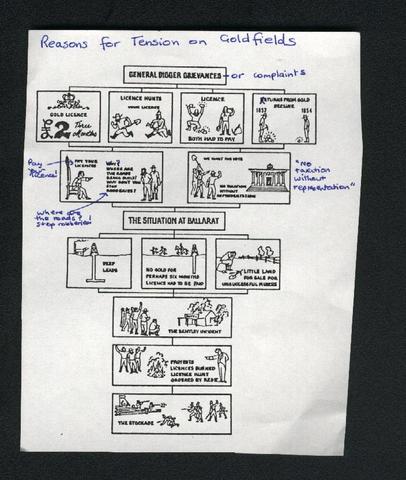 Reasons for Tension on Goldfields
GENERAL DIGGER GRIEVANCES
or complaints
GOLD LICENCE
2
Three
Months
LICENCE HUNTS
YOUR LICENCE
LICENCE
BOTH HAD TO PAY
RETURNS FROM GOLD
DECLINE
1853
1854
Pay
licence!
PAY YOUR
LICENCES
Why?
WHERE ARE
THE ROADS
BEING BUILT?
WHY DON'T YOU
STOP
ROBBERIES?
WE WANT THE VOTE
NO TAXATION
WITHOUT
REPRESENTATION
"No
taxation
without
representation"
where are
the roads?
stop robberies!
THE SITUATION AT BALLARAT
DEEP
LEADS
NO GOLD FOR
PERHAPS SIX MONTHS
LICENCE HAD TO BE PAID
LITTLE LAND
FOR SALE FOR
UNSUCCESSFUL MINERS
THE BENTLEY INCIDENT
PROTESTS
LICENCES BURNED
LICENCE HUNT
ORDERED BY REDE
THE STOCKADE